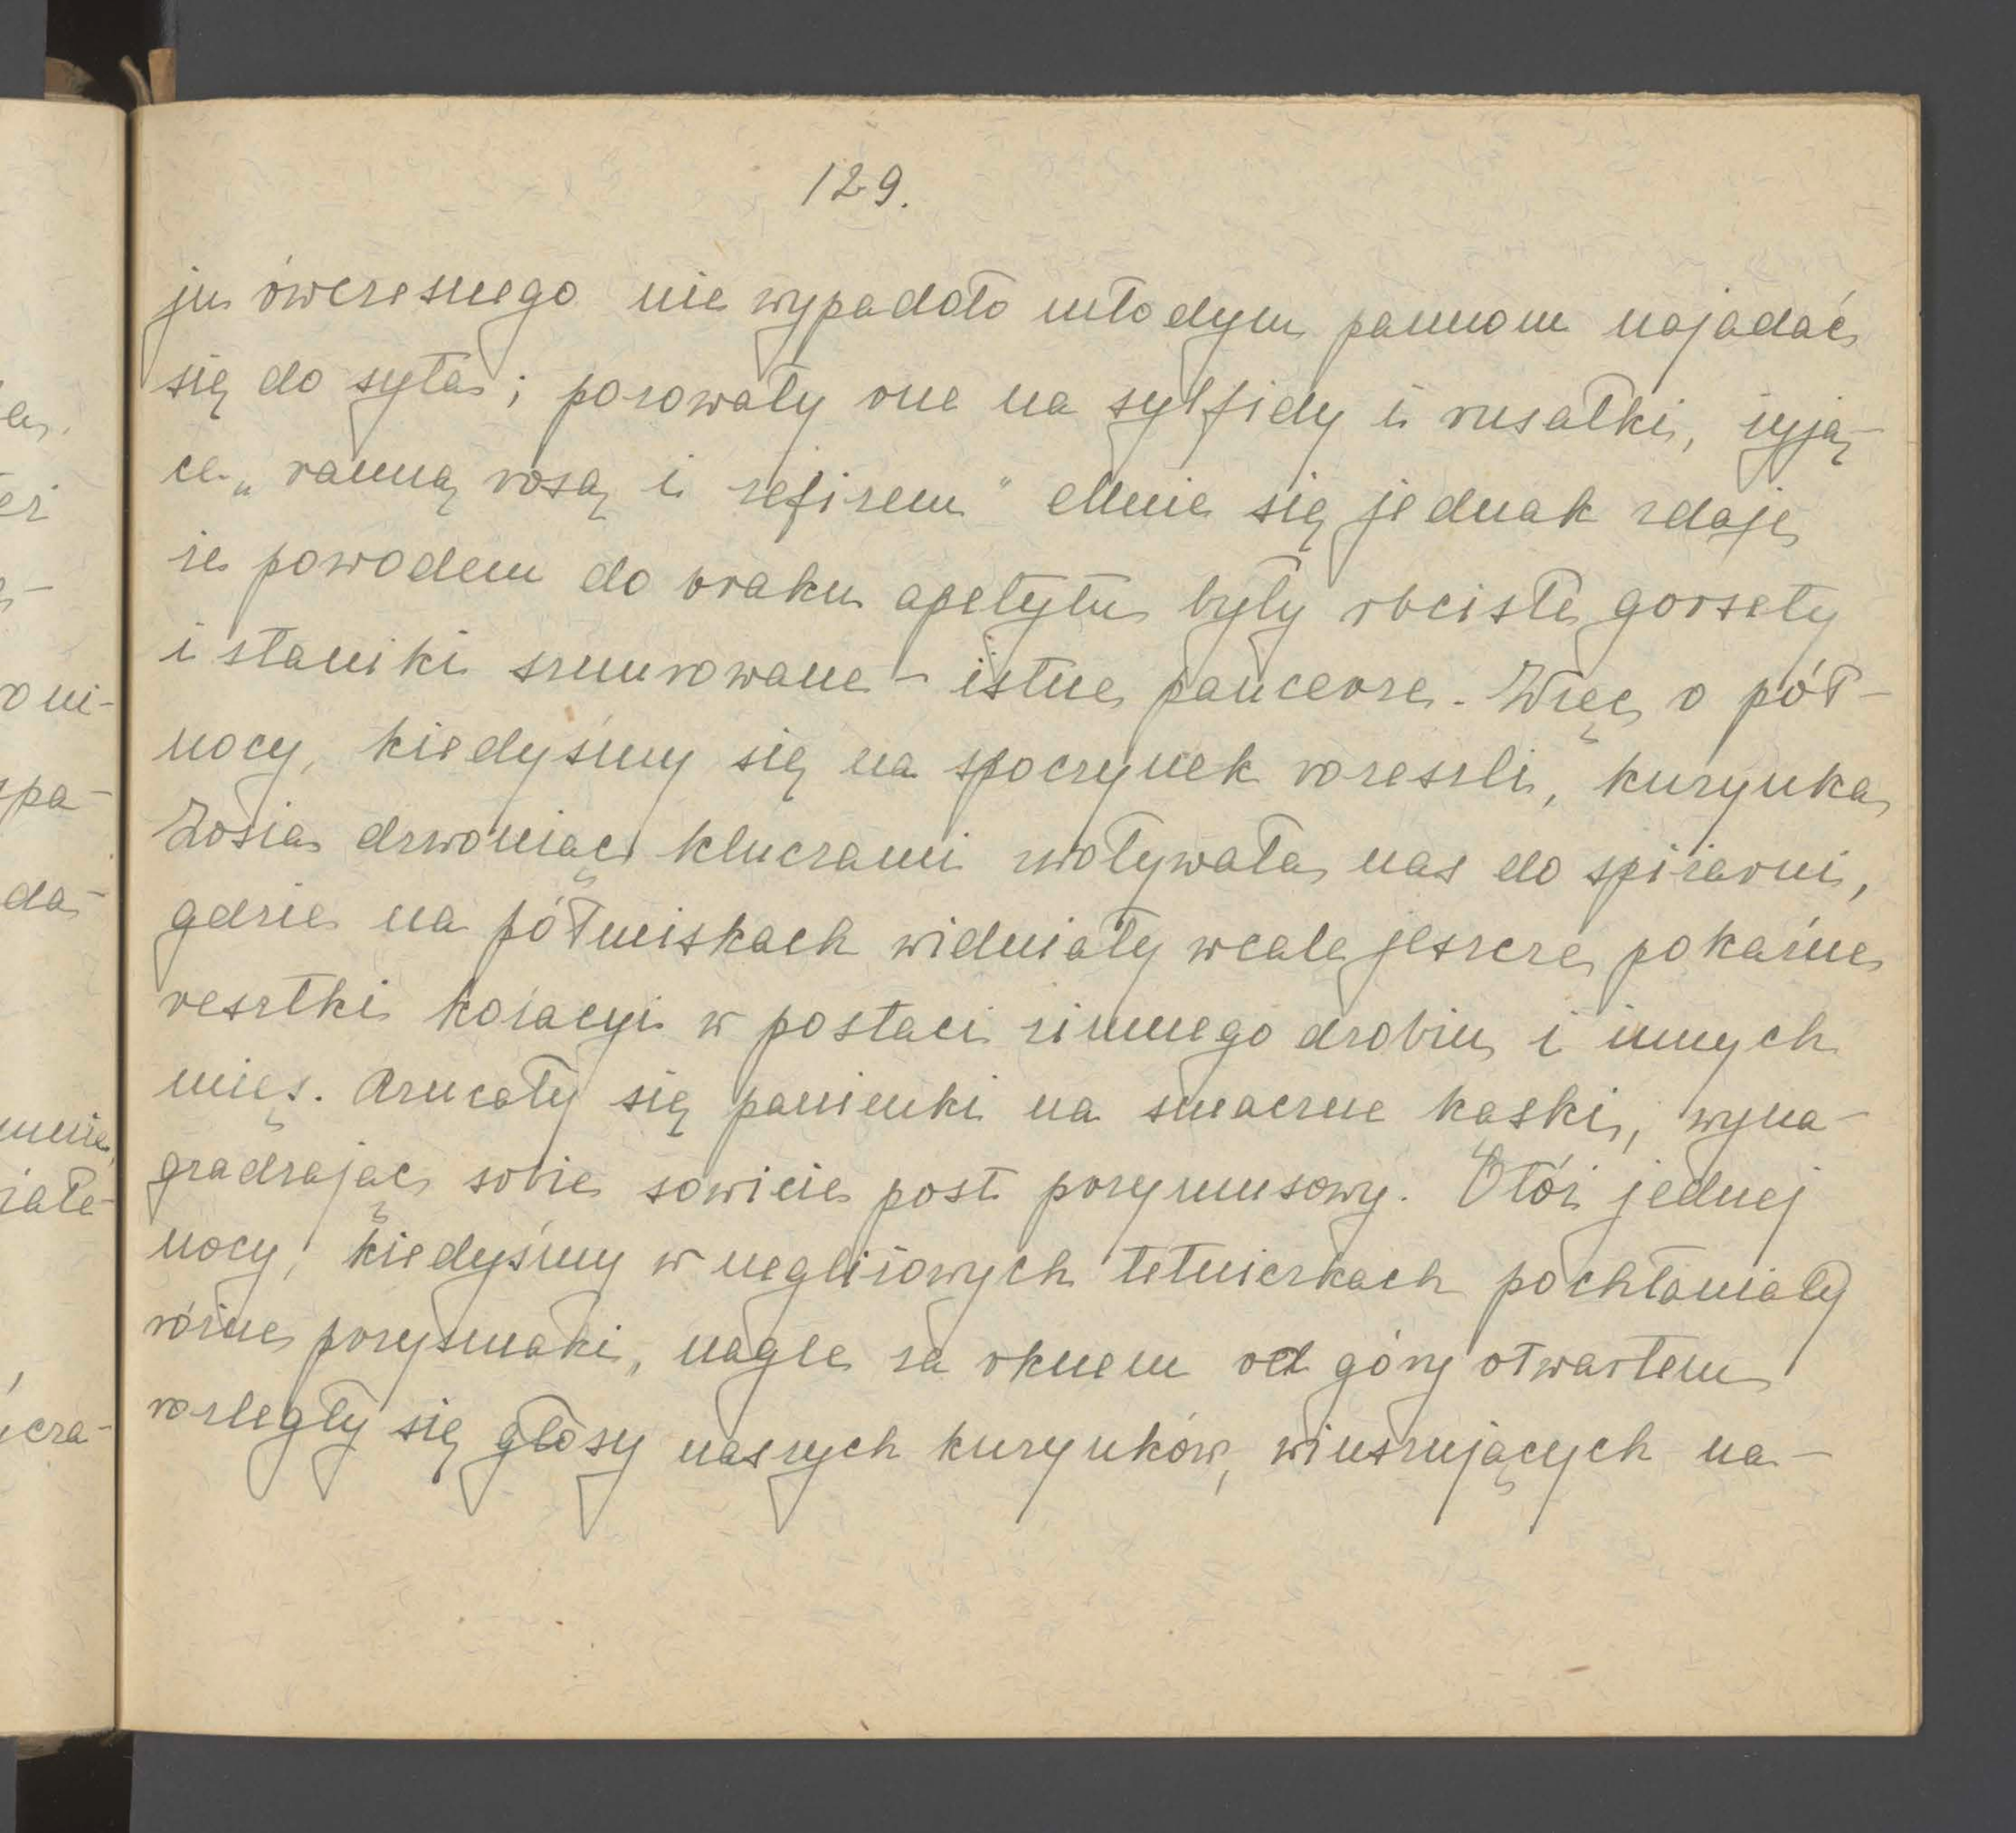 129.
ju ówczesnego nie wypadało młodym pannom najadać
się do syta; pozowały one na sylfidy i rusałki, żyją-
ce „ranną rosą i zefirem" Mnie się jednak zdaje
że powodem do braku apetytu były obcisłe gorsety
i staniki sznurowane – istne pancerze. Więc o pół-
nocy, kiedyśmy się na spoczynek rozeszli, kuzynka
Zosia dzwoniąc kluczami zwoływała nas do spiżarni,
gdzie na półmiskach widniały wcale jeszcze pokaźne
resztki kolacyi w postaci zimnego drobiu i innych
mięs. Rzucały się panienki na smaczne kąski, wyna-
gradzając sobie sowicie post przymusowy. Otóż jednej
nocy, kiedyśmy w negliżowych letniczkach pochłaniały
różne przysmaki, nagle za oknem od góry otwartem
rozległy się głosy naszych kuzynków, winszujących na-
er.
eż
-
o ni-
spa-
da-
mnie,
iałe-
icza-